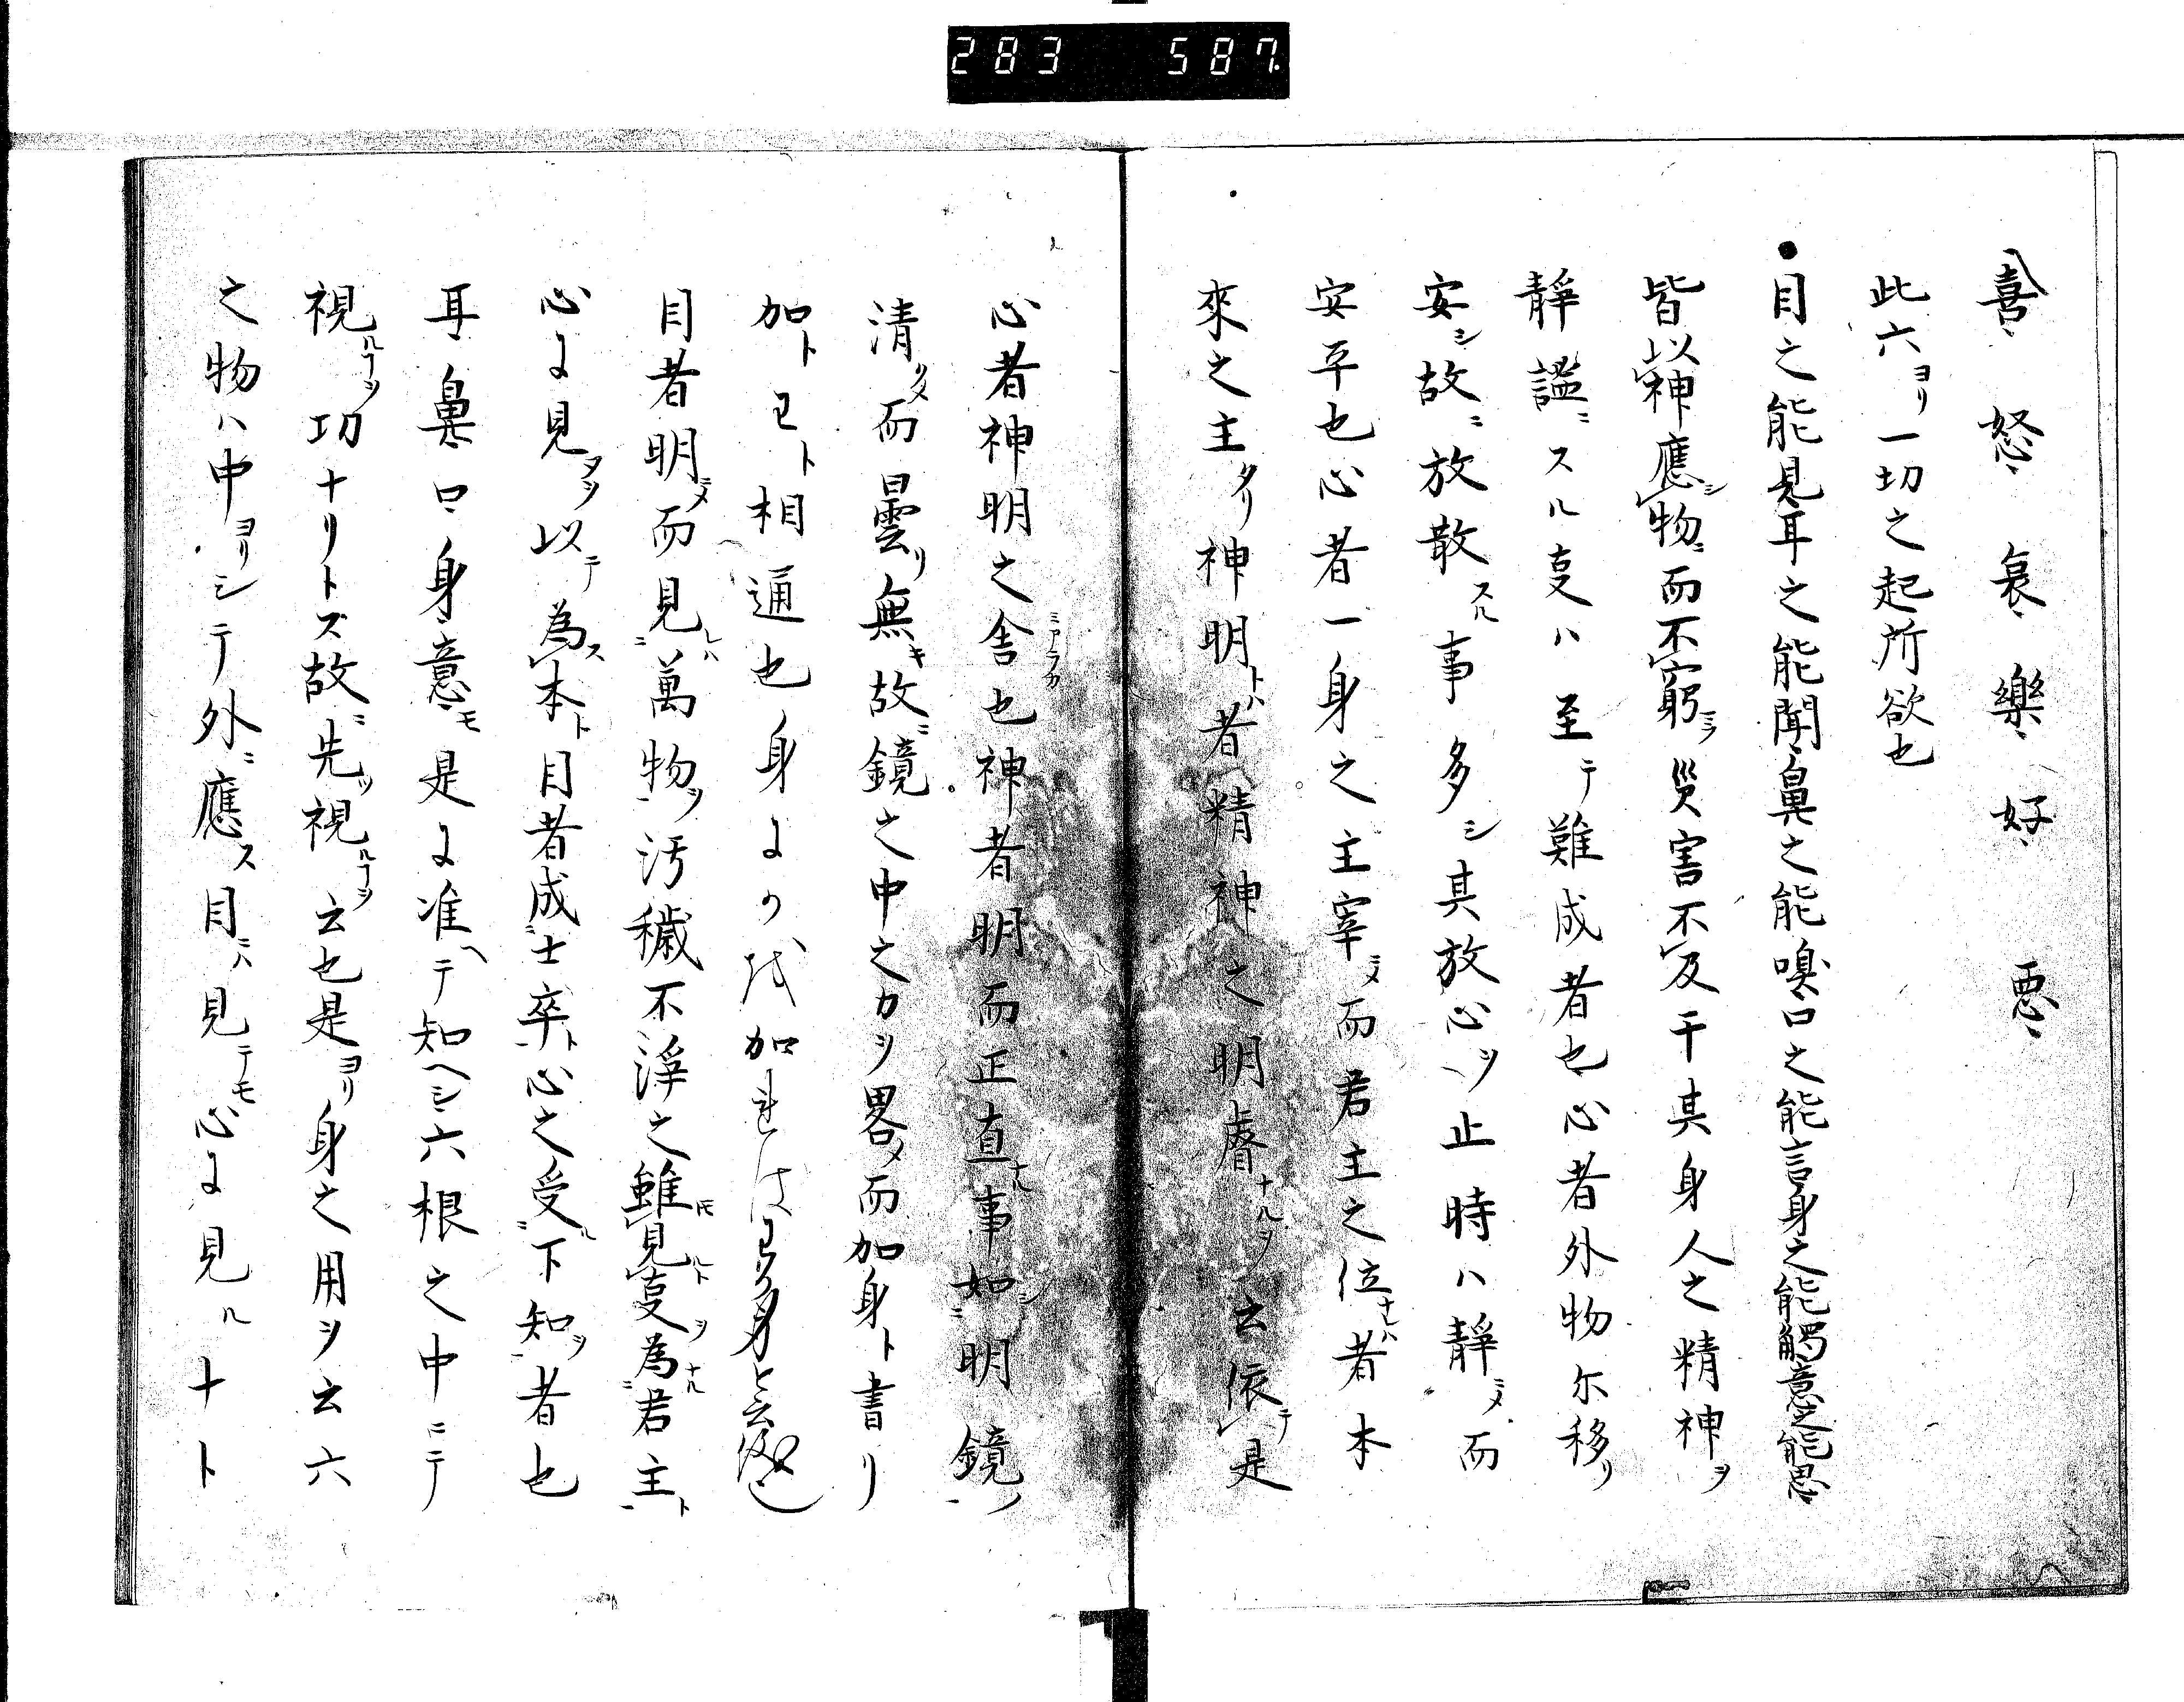 283 587.
喜怒哀樂好悪
此六ヨリ一切之起所欲也
●目之能見耳之能聞鼻之能嗅口之能言身之能觸意之能思
皆以神應シ物ニ而不窮ラ災害不及干其身人之精神ヲ
靜謐ニスル叓ハ至テ難成者也心者外物尓移リ
安シ故ニ放散スル事多シ其放心ヲ止時ハ靜ニメ而
安平也心者一身之主宰ニメ而君主之位ナレハ者本
來之主タリ神明トハ者精神之明睿ナルヲ云依テ是
心者神明之舎ミアラカ也神者明而正直ナル事如シニ明鏡ノ一
清タメ而曇リ無キ故ニ鏡之中之カヲ畧メ而加身ト書リ
加トヱト相通也身よりハ加
目者明ニメ而見レハニ萬物ヲ一汚穢不浄之雖見ルトヲ叓為ナルニ君主ト一
心よ見タヲ以テ為ス本ト目者成ニ士卒ト一心之受ルニ下知ヲ一者也
耳鼻口身意モ是よ准ヘテ知ヘシ六根之中ニテ
視ルヿヲ功ナリトズ故ニ先ツ視ルヿヲ云也是ヨリ身之用ヲ云六
之物ハ中ヨリシテ外ニ應ス目ニハ見テモ心よ見ルナト